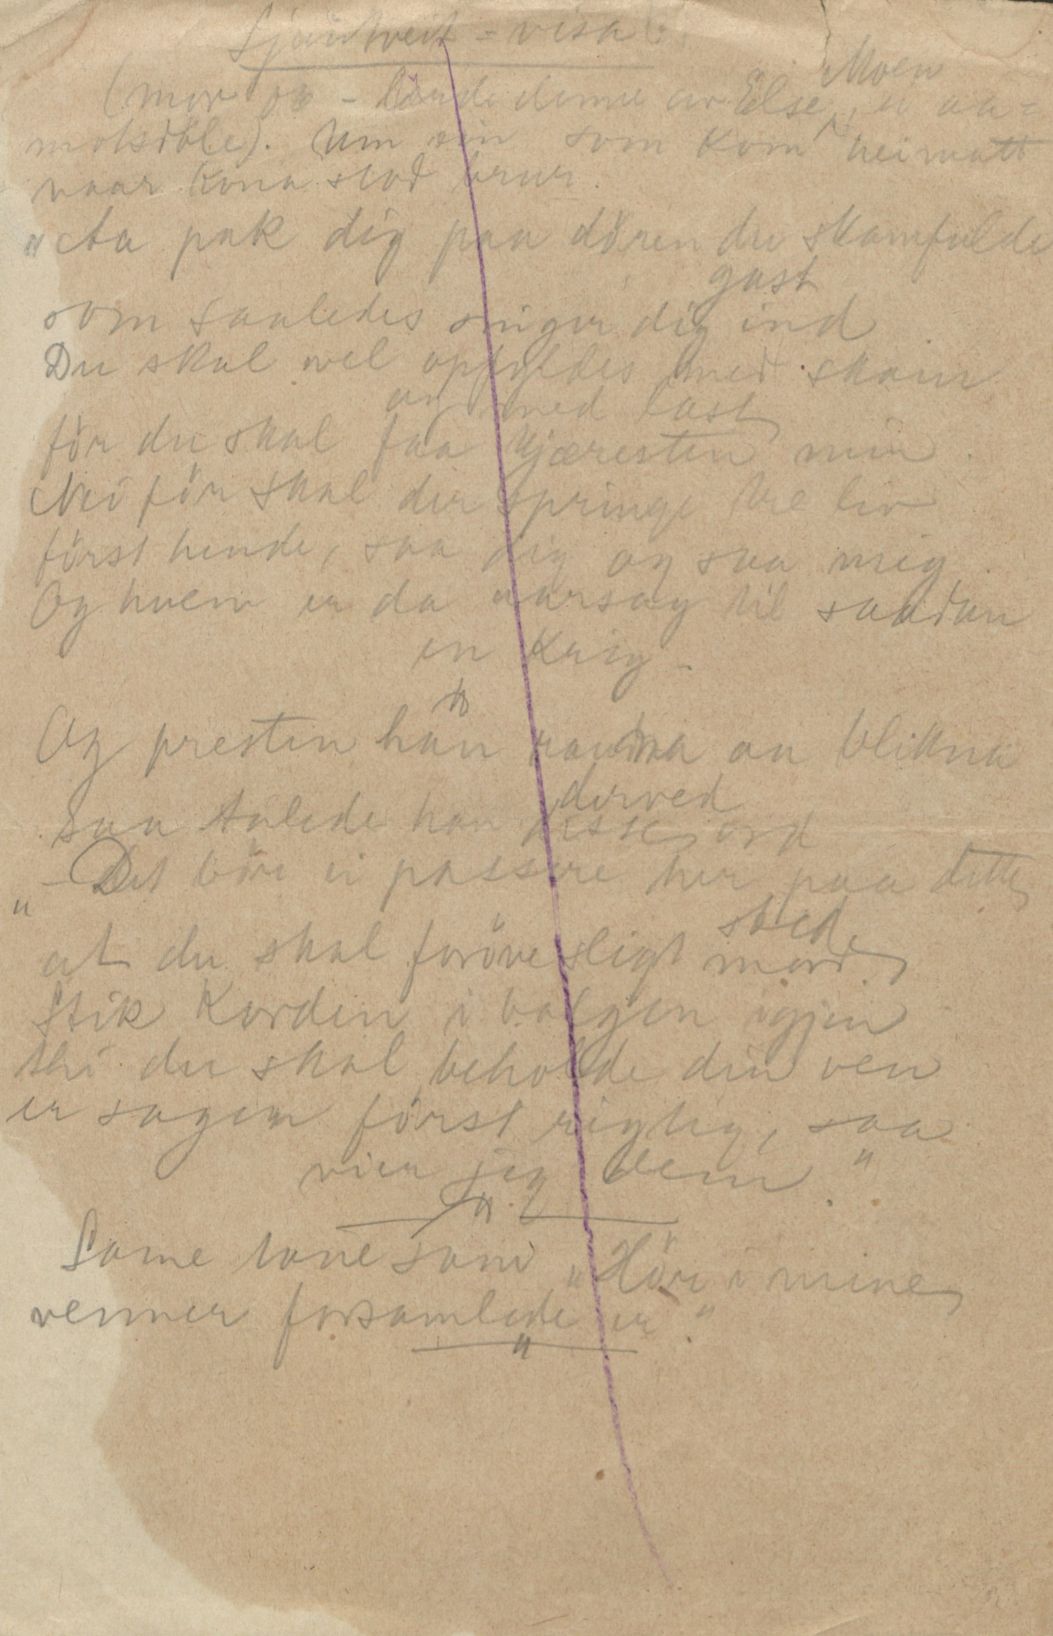 Sjauetveit-visa.
(mor os - lærde denne av Else Moen, ei aa=
motsdble). Um ein som kom heimatt
naar kona stod brur.
"Aa pak dig paa dören du skamfulde
gast
som saaledes sniger dig ind
Du skal vel opfyldes med skam
og med last
för du skal faa kjæresten min.
Nei för skal der springe tre liv
först hende, saa dig og saa mig.
Og hvem er da aarsag til saadan
en krig -
"
Og presten han rauna aa blikna
saa talede han derved disse ord
"- Det bör ei passere her paa dette
sted,
at du skal foröve sligt mord,
Stik Korden i balgen igjen
thi du skal beholde din ven
er sagen först rigtig, saa
vier jeg dem."
"
Same tone som "Hör i mine
venner forsamlede er."
"